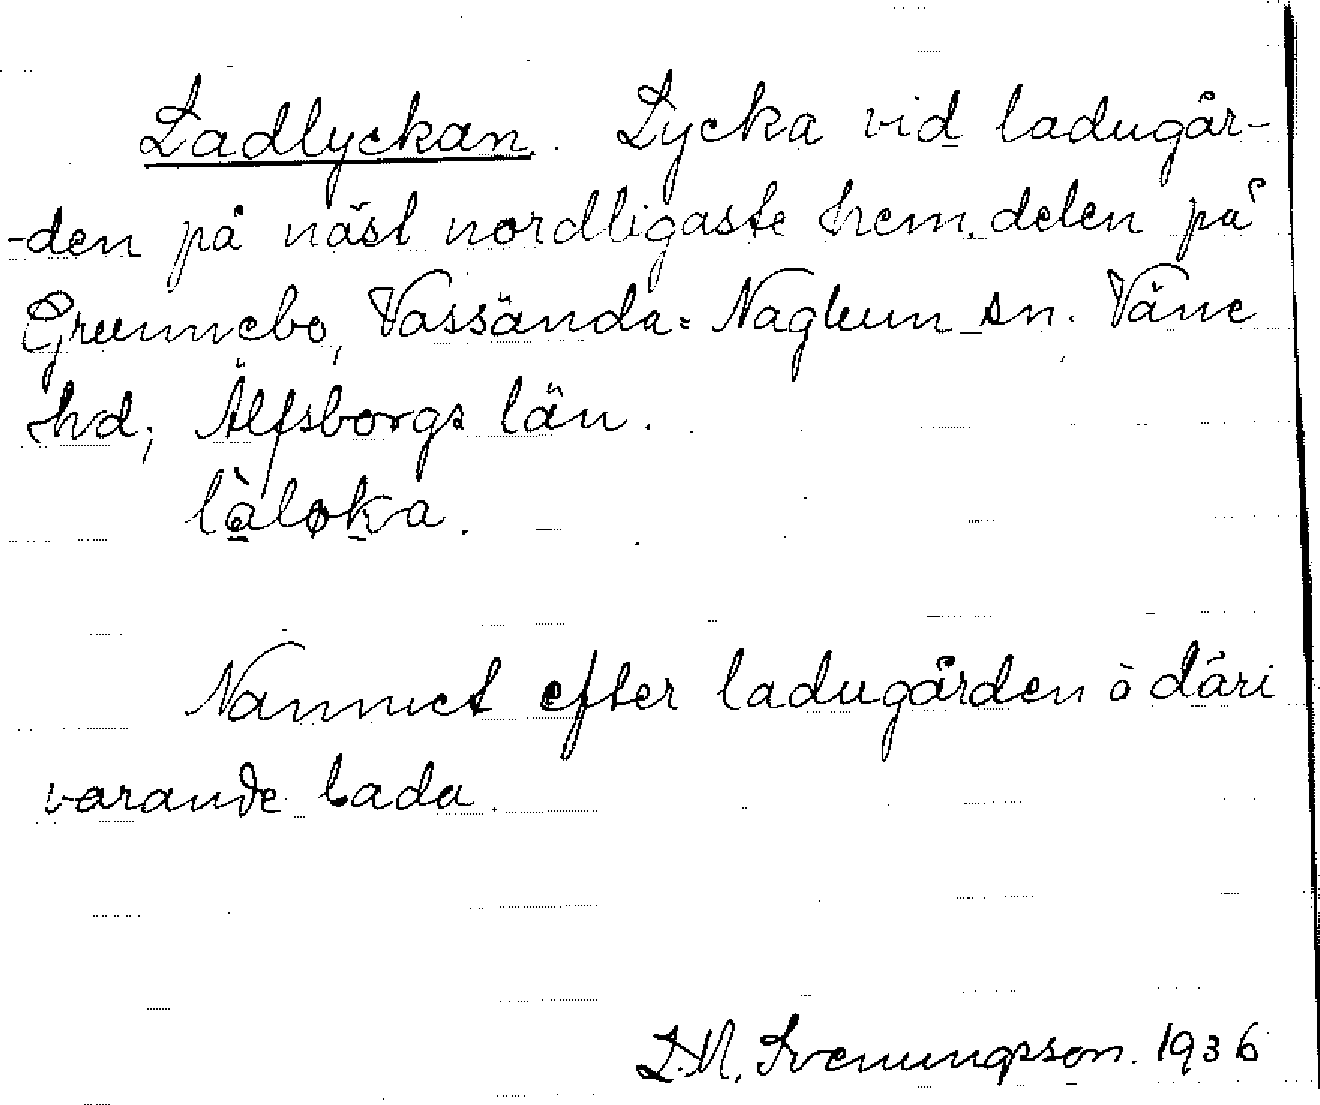 Ladlyckan. Lycka vid ladugår-
-den på näst nordligaste hem.delen på
Grunnebo, Vassända-Naglum sn. Väne
hd; Älfsborgs län.
làløka.
Namnet efter ladugården ò däri
varande lada.
L.M. Svenungsson. 1936